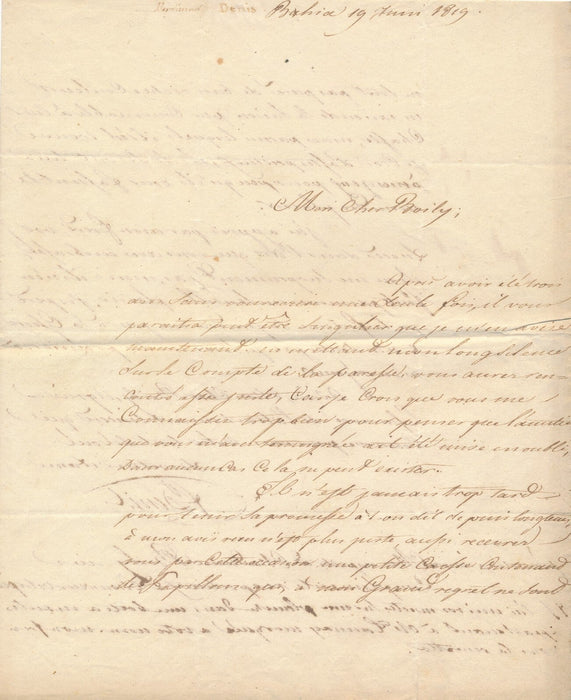 Ferdinand Denis
Bahia 19 Juin 1819.
Mon Cher Boily;
Après avoir été trois
ans sans vous ecrire une seule fois, il vous
paraitra peut être singulier que je m'en avise
maintenant. en mettant mon long silence
sur le compte de la paresse, vous aurez ren-
contré assez juste, Car je Crois que vous me
Connaissez trop bien pour penser que l'amitié
que vous m'avez temoignée ait été mise en oubli,
dans aucun cas cela ne peut exister.
Il n'est jamais trop tard
pour tenir sa promesse à t'on dit de puis longtems,
à mon avis rien n'est plus juste aussi recevrez
vous par cette occasion une petite Caisse Contenant
des Papillons qui, à mon Grand regret ne sont